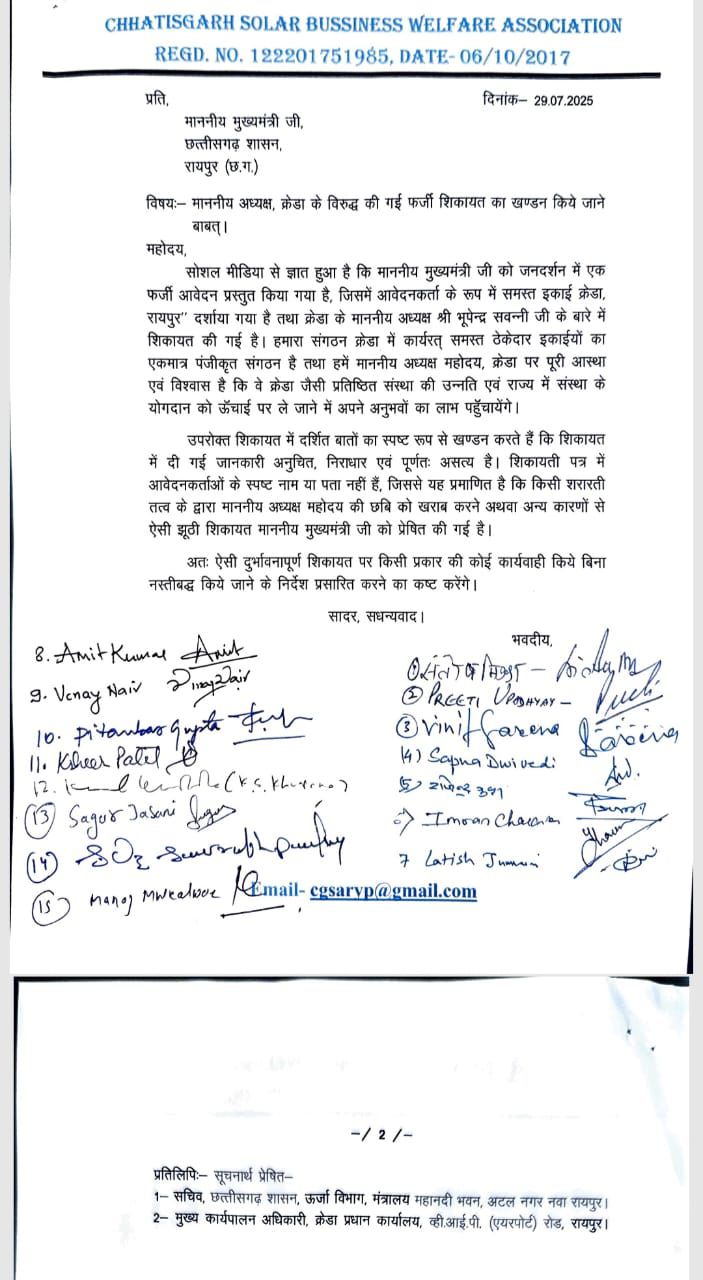 CHHATISGARH SOLAR BUSSINESS WELFARE ASSOCIATION
REGD. NO. 122201751985, DATE- 06/10/2017
प्रति,
दिनांक– 29.07.2025
माननीय मुख्यमंत्री जी,
छत्तीसगढ़ शासन,
रायपुर (छ.ग.)
विषयः– माननीय अध्यक्ष, क्रेडा के विरुद्ध की गई फर्जी शिकायत का खण्डन किये जाने
बाबत्।
महोदय,
सोशल मीडिया से ज्ञात हुआ है कि माननीय मुख्यमंत्री जी को जनदर्शन में एक
फर्जी आवेदन प्रस्तुत किया गया है, जिसमें आवेदनकर्ता के रूप में समस्त इकाई क्रेडा,
रायपुर" दर्शाया गया है तथा क्रेडा के माननीय अध्यक्ष श्री भूपेन्द्र सवन्नी जी के बारे में
शिकायत की गई है। हमारा संगठन क्रेडा में कार्यरत् समस्त ठेकेदार इकाईयों का
एकमात्र पंजीकृत संगठन है तथा हमें माननीय अध्यक्ष महोदय, क्रेडा पर पूरी आस्था
एवं विश्वास है कि वे क्रेडा जैसी प्रतिष्ठित संस्था की उन्नति एवं राज्य में संस्था के
योगदान को ऊँचाई पर ले जाने में अपने अनुभवों का लाभ पहुँचायेंगे।
उपरोक्त शिकायत में दर्शित बातों का स्पष्ट रूप से खण्डन करते हैं कि शिकायत
में दी गई जानकारी अनुचित, निराधार एवं पूर्णतः असत्य है। शिकायती पत्र में
आवेदनकर्ताओं के स्पष्ट नाम या पता नहीं हैं, जिससे यह प्रमाणित है कि किसी शरारती
तत्व के द्वारा माननीय अध्यक्ष महोदय की छबि को खराब करने अथवा अन्य कारणों से
ऐसी झूठी शिकायत माननीय मुख्यमंत्री जी को प्रेषित की गई है।
अतः ऐसी दुर्भावनापूर्ण शिकायत पर किसी प्रकार की कोई कार्यवाही किये बिना
नस्तीबद्ध किये जाने के निर्देश प्रसारित करने का कष्ट करेंगे।
सादर, सधन्यवाद।
भवदीय,
① 
② PREETI UPADHYAY –
③ Vinit
(4) Sapna Dwivedi
6) Imran
7 Latish
8. Amit Kumar Amit
9. Venay Nair
10. Pitambar Gupta
11. Kisher Patel
12. (K.S.
(13) Sagar Jasani
(14)
(15) Manoj
Email- cgsaryp@gmail.com
-/ 2 /-
प्रतिलिपिः– सूचनार्थ प्रेषित–
1– सचिव, छत्तीसगढ़ शासन, ऊर्जा विभाग, मंत्रालय महानदी भवन, अटल नगर नवा रायपुर।
2– मुख्य कार्यपालन अधिकारी, क्रेडा प्रधान कार्यालय, व्ही.आई.पी. (एयरपोर्ट) रोड, रायपुर।